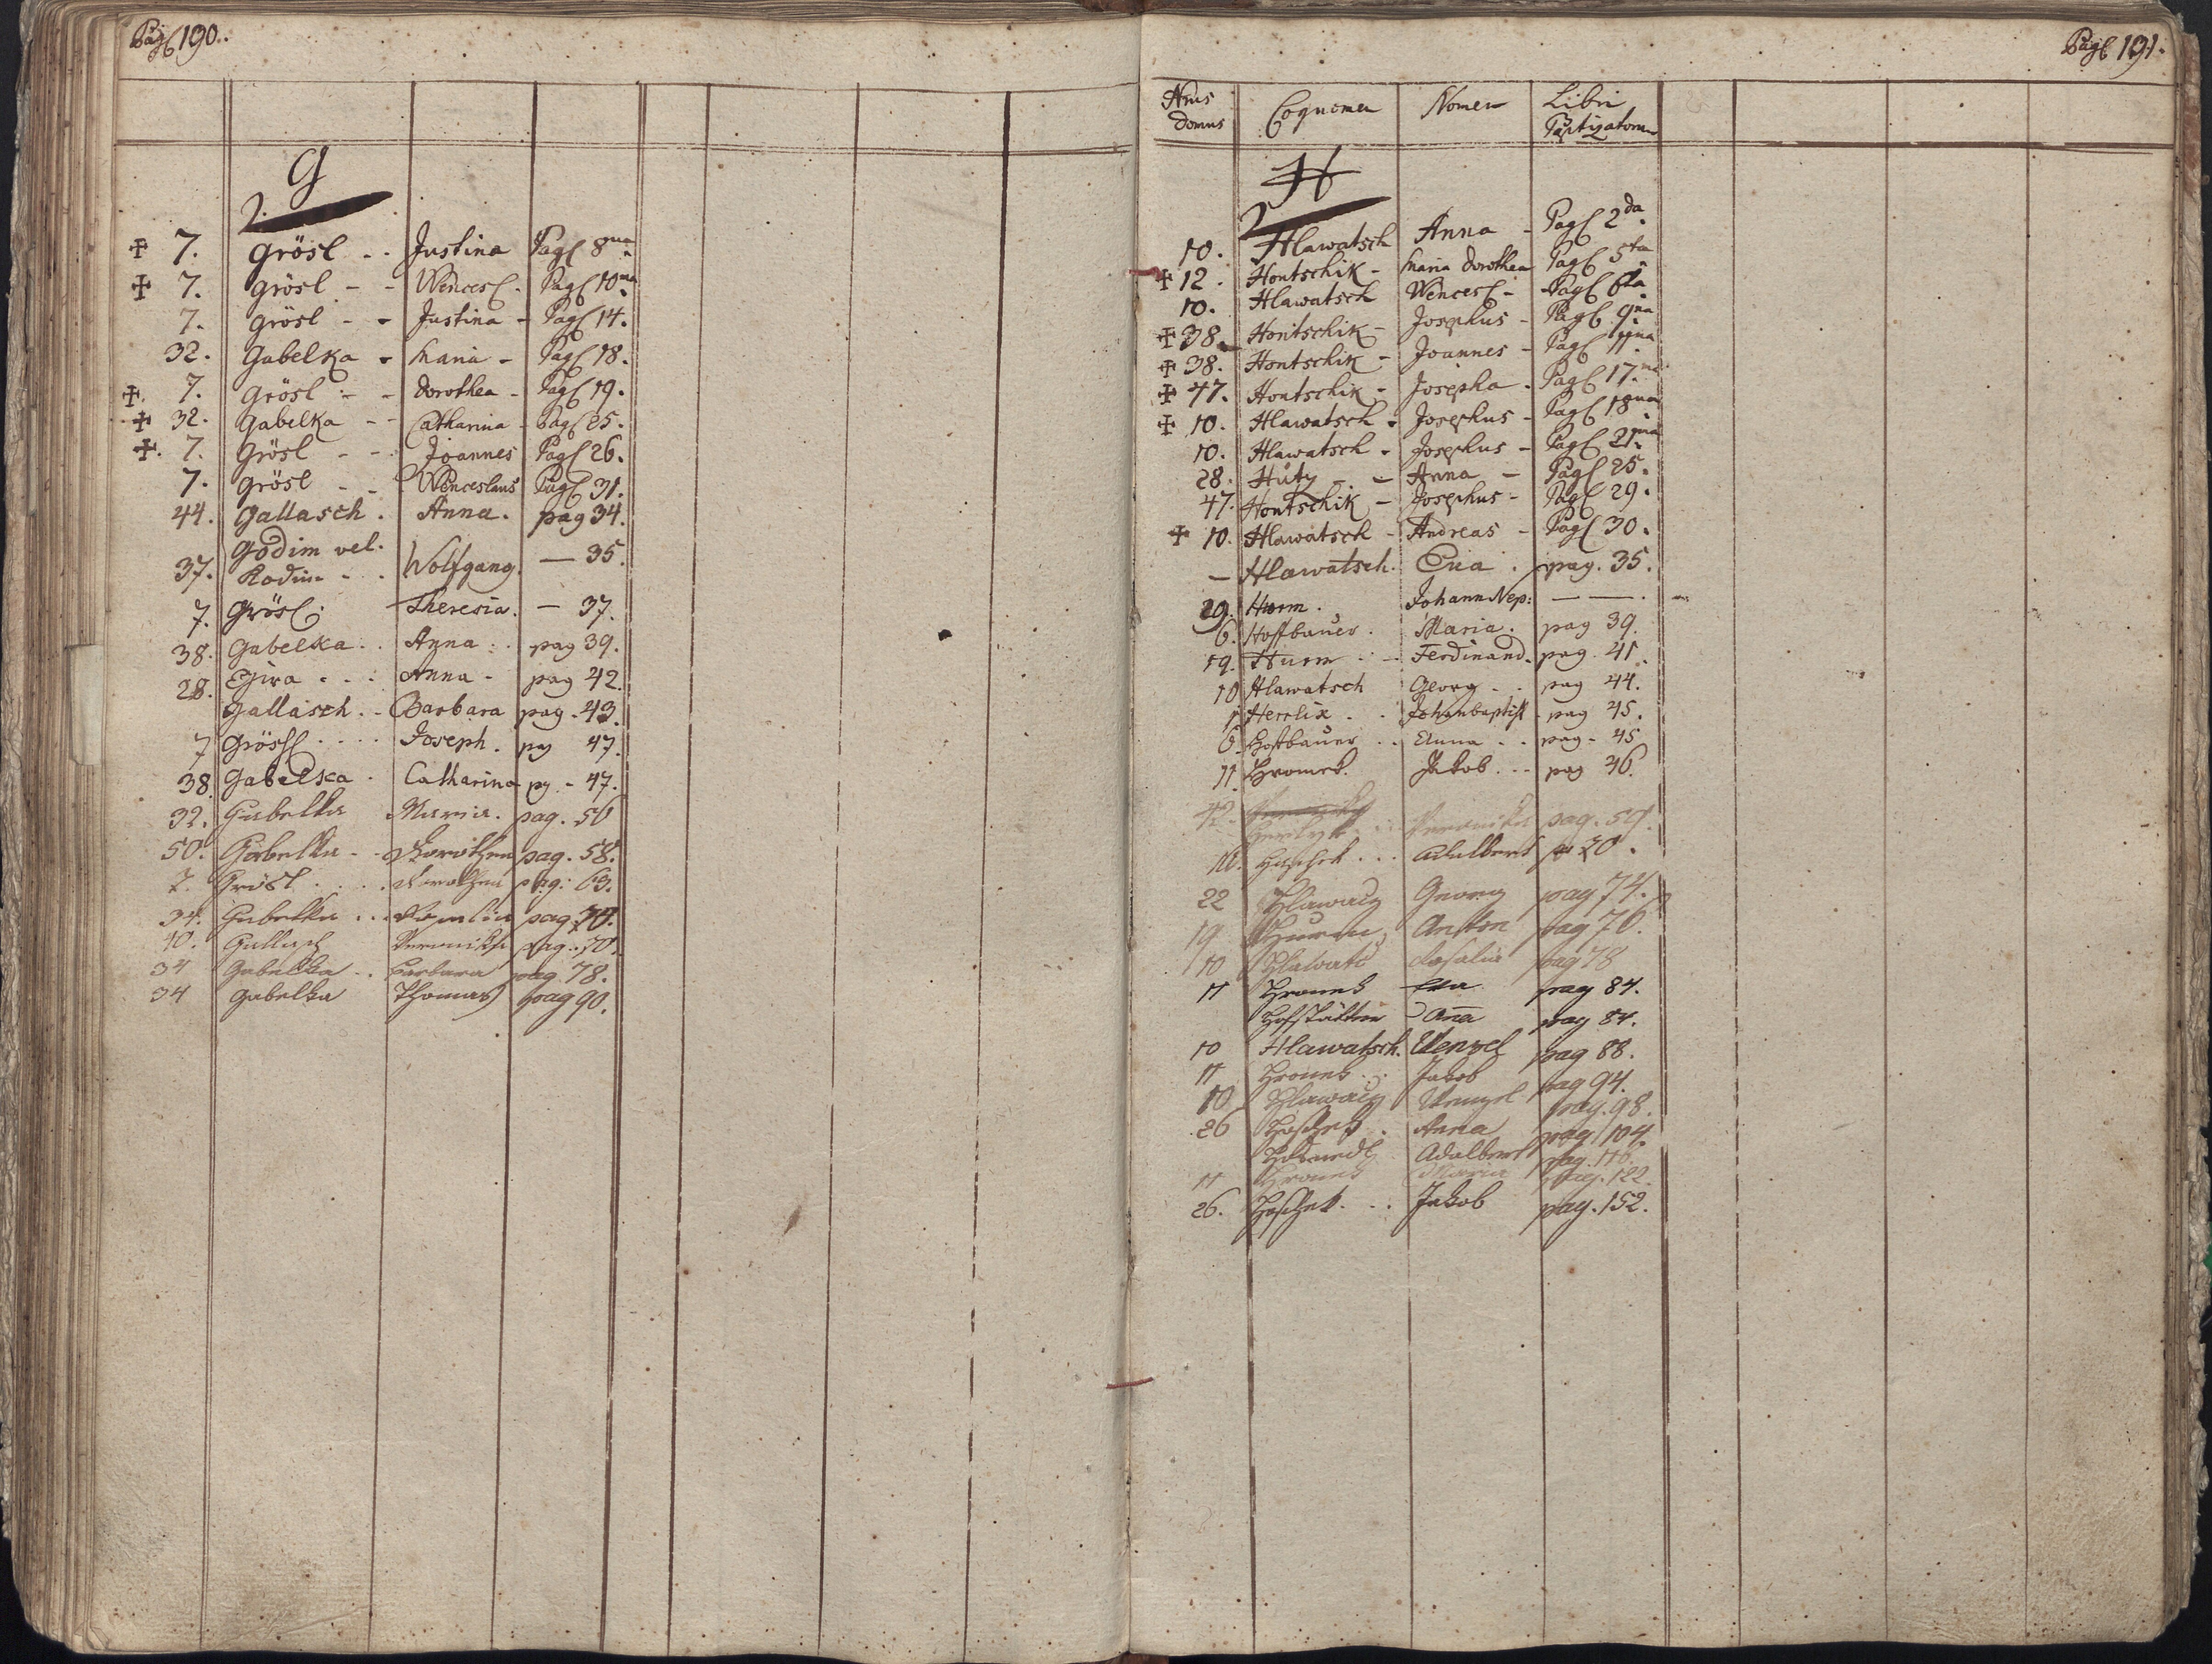 Pag 190.
G
✠ 7. Grösl - - Justina Pag 8va
✠ 7. Grösl - - Wencesl. Pag 10ma
7. Grösl - - Justina - Pag 14.
32. Gabelka - Maria - Pag 18.
✠. 7. Grösl - - Dorothea - Pag 19.
✠ 32. Gabelka - - Catharina - Pag 25.
✠. 7. Grösl - - Joannes Pag 26.
7. Grösl - - Wenceslaus Pag 31.
44. Gallasch. Anna. pag 34.
Godim vel.
37. Kodim - . Wolfgang. — 35.
7. Grösl. Theresia. — 37.
38. Gabelka. . Anna . . pag 39.
28. Anna - pag 42.
Gallasch. - Barbara pag - 43.
7 Grösl . . . . Joseph. pag 47.
38. Gabelka . Catharina pg. - 47.
32. Gabelka Maria. pag. 56
50. Gabelka - - Dorothea pag. 58.
7. Grösl . . . . Dorothea pag: 63.
34. Gabelka . . . pag 70.
40. Gallasch Veronika pag. 70.
34 Gabelka . . Barbara pag 78.
34 Gabelka Thomas pag 90.
Pag 191.
Nrus Domus Cognomen Nomen Libri Baptizatorum
H
10. Hlawatsch Anna - Pag 2da
✠ 12. Hontschik - Maria Dorothea Pag 5ta
10. Hlawatsch Wencesl - Pag 6ta
✠ 38. Hontschik - Josephus - Pag 9na
✠ 38. Hontschik - Joannes - Pag 11ma
✠ 47. Hontschik - Josepha - Pag 17.ma
✠ 10. Hlawatsch - Josephus - Pag 18va
10. Hlawatsch - Josephus - Pag 21ma
28. Huty - - Anna - Pag 25.
47. Hontschik - Josephus - Pag 29.
✠ 10. Hlawatsch - Andreas - Pag 30.
— Hlawatsch. Eva . pag. 35.
29. Hurm . Johann Nep: — — .
6. Hoffbauer . Maria. pag 39.
19. Hurm . - Ferdinand. pag. 41.
10 Hlawatsch Georg . . pag 44.
1 Herrlix . . Johanbaptist - pag 45.
6. Hoffbauer . . Anna . . pag - 45
11. Hromek. Jakob. . - pag 46.
42. Veronika pag. 59.
Haschek . . . Adalbert 70.
22 Hlawacz Georg pag 74.
19 Hurm Anton pag 76.
10 Hlawatš Rosalia pag 78
11 Hromek Eva pag 84.
Hofstätter Aña pag 84.
10 Hlawatsch. Wenzel pag 88.
11 Hromek . . Jakob pag 94.
10 Hlawacz Wenzel pag. 98.
26 Haschek . Anna pag 104.
Adalbert pag. 116.
11 Hromek Maria pag. 122.
26. Haschek. . . Jakob pag. 152.